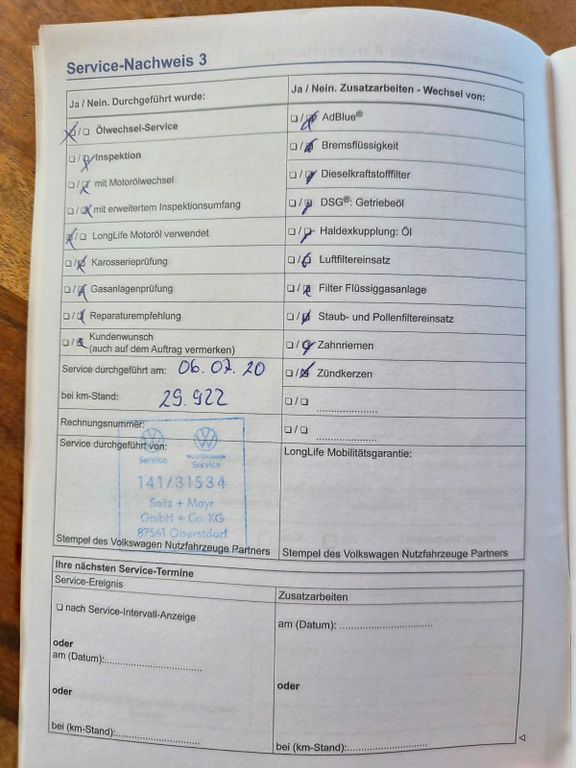 Service-Nachweis 3
Ja / Nein. Durchgeführt wurde:
Ölwechsel-Service
Inspektion
mit Motorölwechsel
mit erweitertem Inspektionsumfang
LongLife Motoröl verwendet
Karosserieprüfung
Gasanlagenprüfung
Reparaturempfehlung
Kundenwunsch
(auch auf dem Auftrag vermerken)
Service durchgeführt am: 06.07.20
bei km-Stand: 29.922
Rechnungsnummer:
Service durchgeführt von:
Service
Service
141/31534
Seitz + Mayr
GmbH + Co. KG
87561 Oberstdorf
Stempel des Volkswagen Nutzfahrzeuge Partners
Ja / Nein. Zusatzarbeiten - Wechsel von:
AdBlue®
Bremsflüssigkeit
Dieselkraftstofffilter
DSG®: Getriebeöl
Haldexkupplung: Öl
Luftfiltereinsatz
Filter Flüssiggasanlage
Staub- und Pollenfiltereinsatz
Zahnriemen
Zündkerzen
LongLife Mobilitätsgarantie:
Stempel des Volkswagen Nutzfahrzeuge Partners
Ihre nächsten Service-Termine
Service-Ereignis
nach Service-Intervall-Anzeige
oder
am (Datum):
oder
bei (km-Stand):
Zusatzarbeiten
am (Datum):
oder
bei (km-Stand):